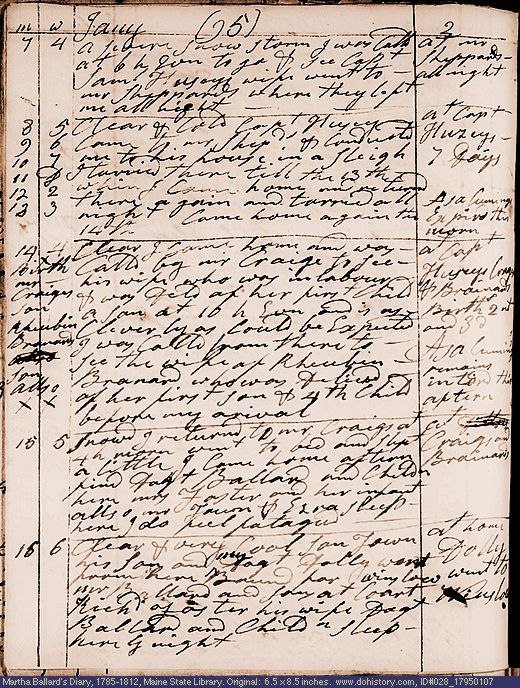 m w Jany (25) 2
7 4 a severe snow storm I was Calld at mr
at 6 h Evn to go & See Capt Sheppards
Saml Huseys wife went to all night
mr Sheppards where they Slept
me all night
8 5 Clear & Cold Capt Husey at Capt
9 6 Came to mr Ship & Conducted Huzeys
10 7 me to his house in a Sleigh 7 Days
11 I tarried there till the 13th
12 2 when I Came home
13 3 there again and tarried all
night & Come home again the
14th
morn
14 4 Clear I came home and was at Capt
Birth Calld by mr Craige to See Huseys Craigs
mr his wife who was in labour & Branards
Craiges & was Deld of her first Child Birth 2nd
Son a Son at 10 h Evn and is as and 3d
Rheubin Cleverly as Could be Expected
Branards I was Calld from there to
See the wife of Rheuben remains
Son Branard who was Delivrd
allso of her first Son & 4th Child
x x before my arival
15 5 Snowd I returned to mr Craigs at at
4 h morn went to bed and Slept Craigs and
a little. I Came home aftern Branards
find Dagt Ballard and Childn
here mrs Foster and her infant
allso, mr Town & Ezra Sleep
here. I do feel fatagud
16 6 Clear & very Cool Son Town at home
his Son and my Dagt Dolly went Dolly
from here Bound for winslow went to
mr Ballard and Son at Court
Richd Foster his wife Dagt
Ballard and Childn Sleep
here to night
Martha Ballard's Diary, 1785-1812, Maine State Library. Original: 6.5 x 8.5 inches. www.dohistory.com, ID#028_17950107